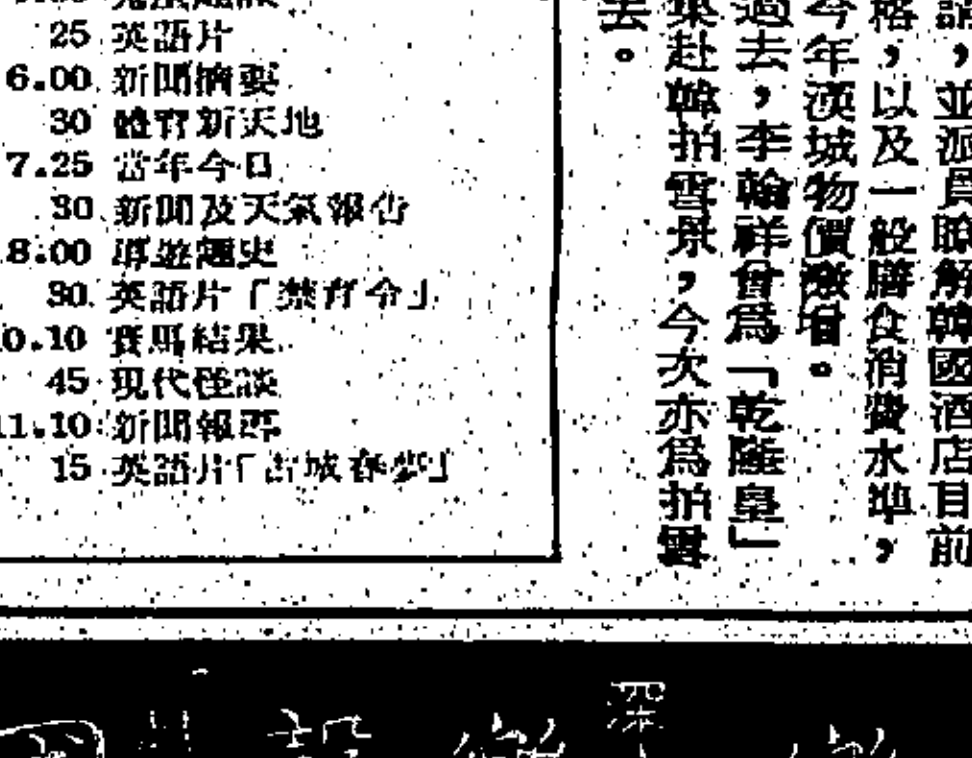 25 英語片
6.00 新聞摘要
30 體育新天地
7.25 當年今日
30 新聞及天氣報告
8.00 導遊趣史
30 英語片「禁育令」
0.10 賽馬結果
45 現代怪談
11.10 新聞報告
15 英語片「古城春夢」
請,並派員瞭解韓國酒店目前
格,以及一般膳食消費水準,
今年漢城物價激增。
過去,李翰祥會爲「乾隆皇」
集赴韓拍雪景,今次亦爲拍雪
去。
深